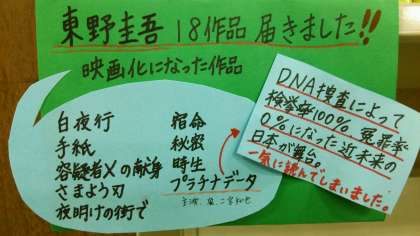 東野圭吾 18作品 届きました!!
映画化になった作品
白夜行
手紙
容疑者Xの献身
さまよう刃
夜明けの街で
宿命
秘密
時生
プラチナデータ
主演
DNA捜査によって
検挙率100% 冤罪率
0%になった近未来の
日本が舞台。
一気に読んでしまいました。